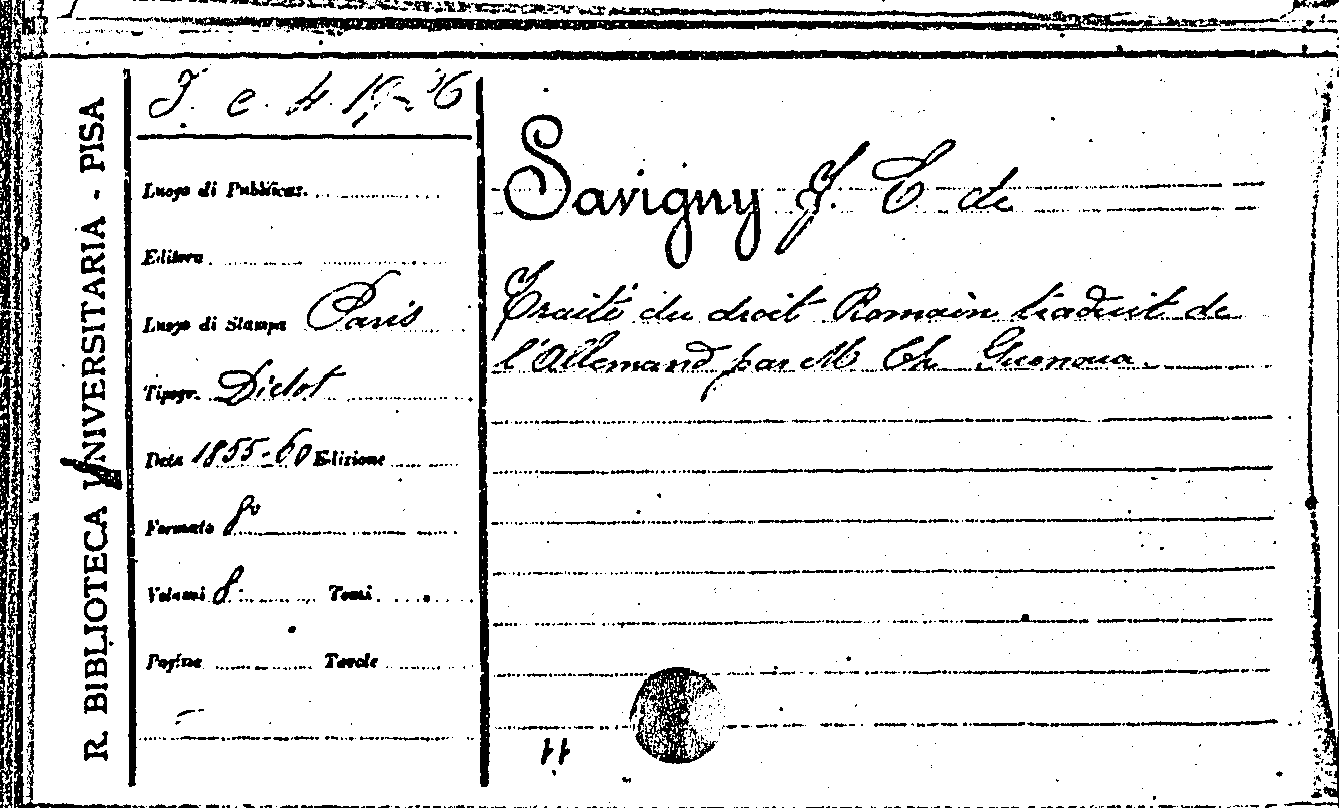 R. BIBLIOTECA UNIVERSITARIA - PISA
J. c. 4. 19-26
Luogo di Pubblicaz.
Editore
Luogo di Stampa Paris
Tipogr. Didot
Data 1855-60 Edizione
Formato 8º
Volumi 8. Tomi
Pagine Tavole
Savigny F. C de
Traité du droit Romain traduit de
l'Allemand par M Ch. Guenoua.